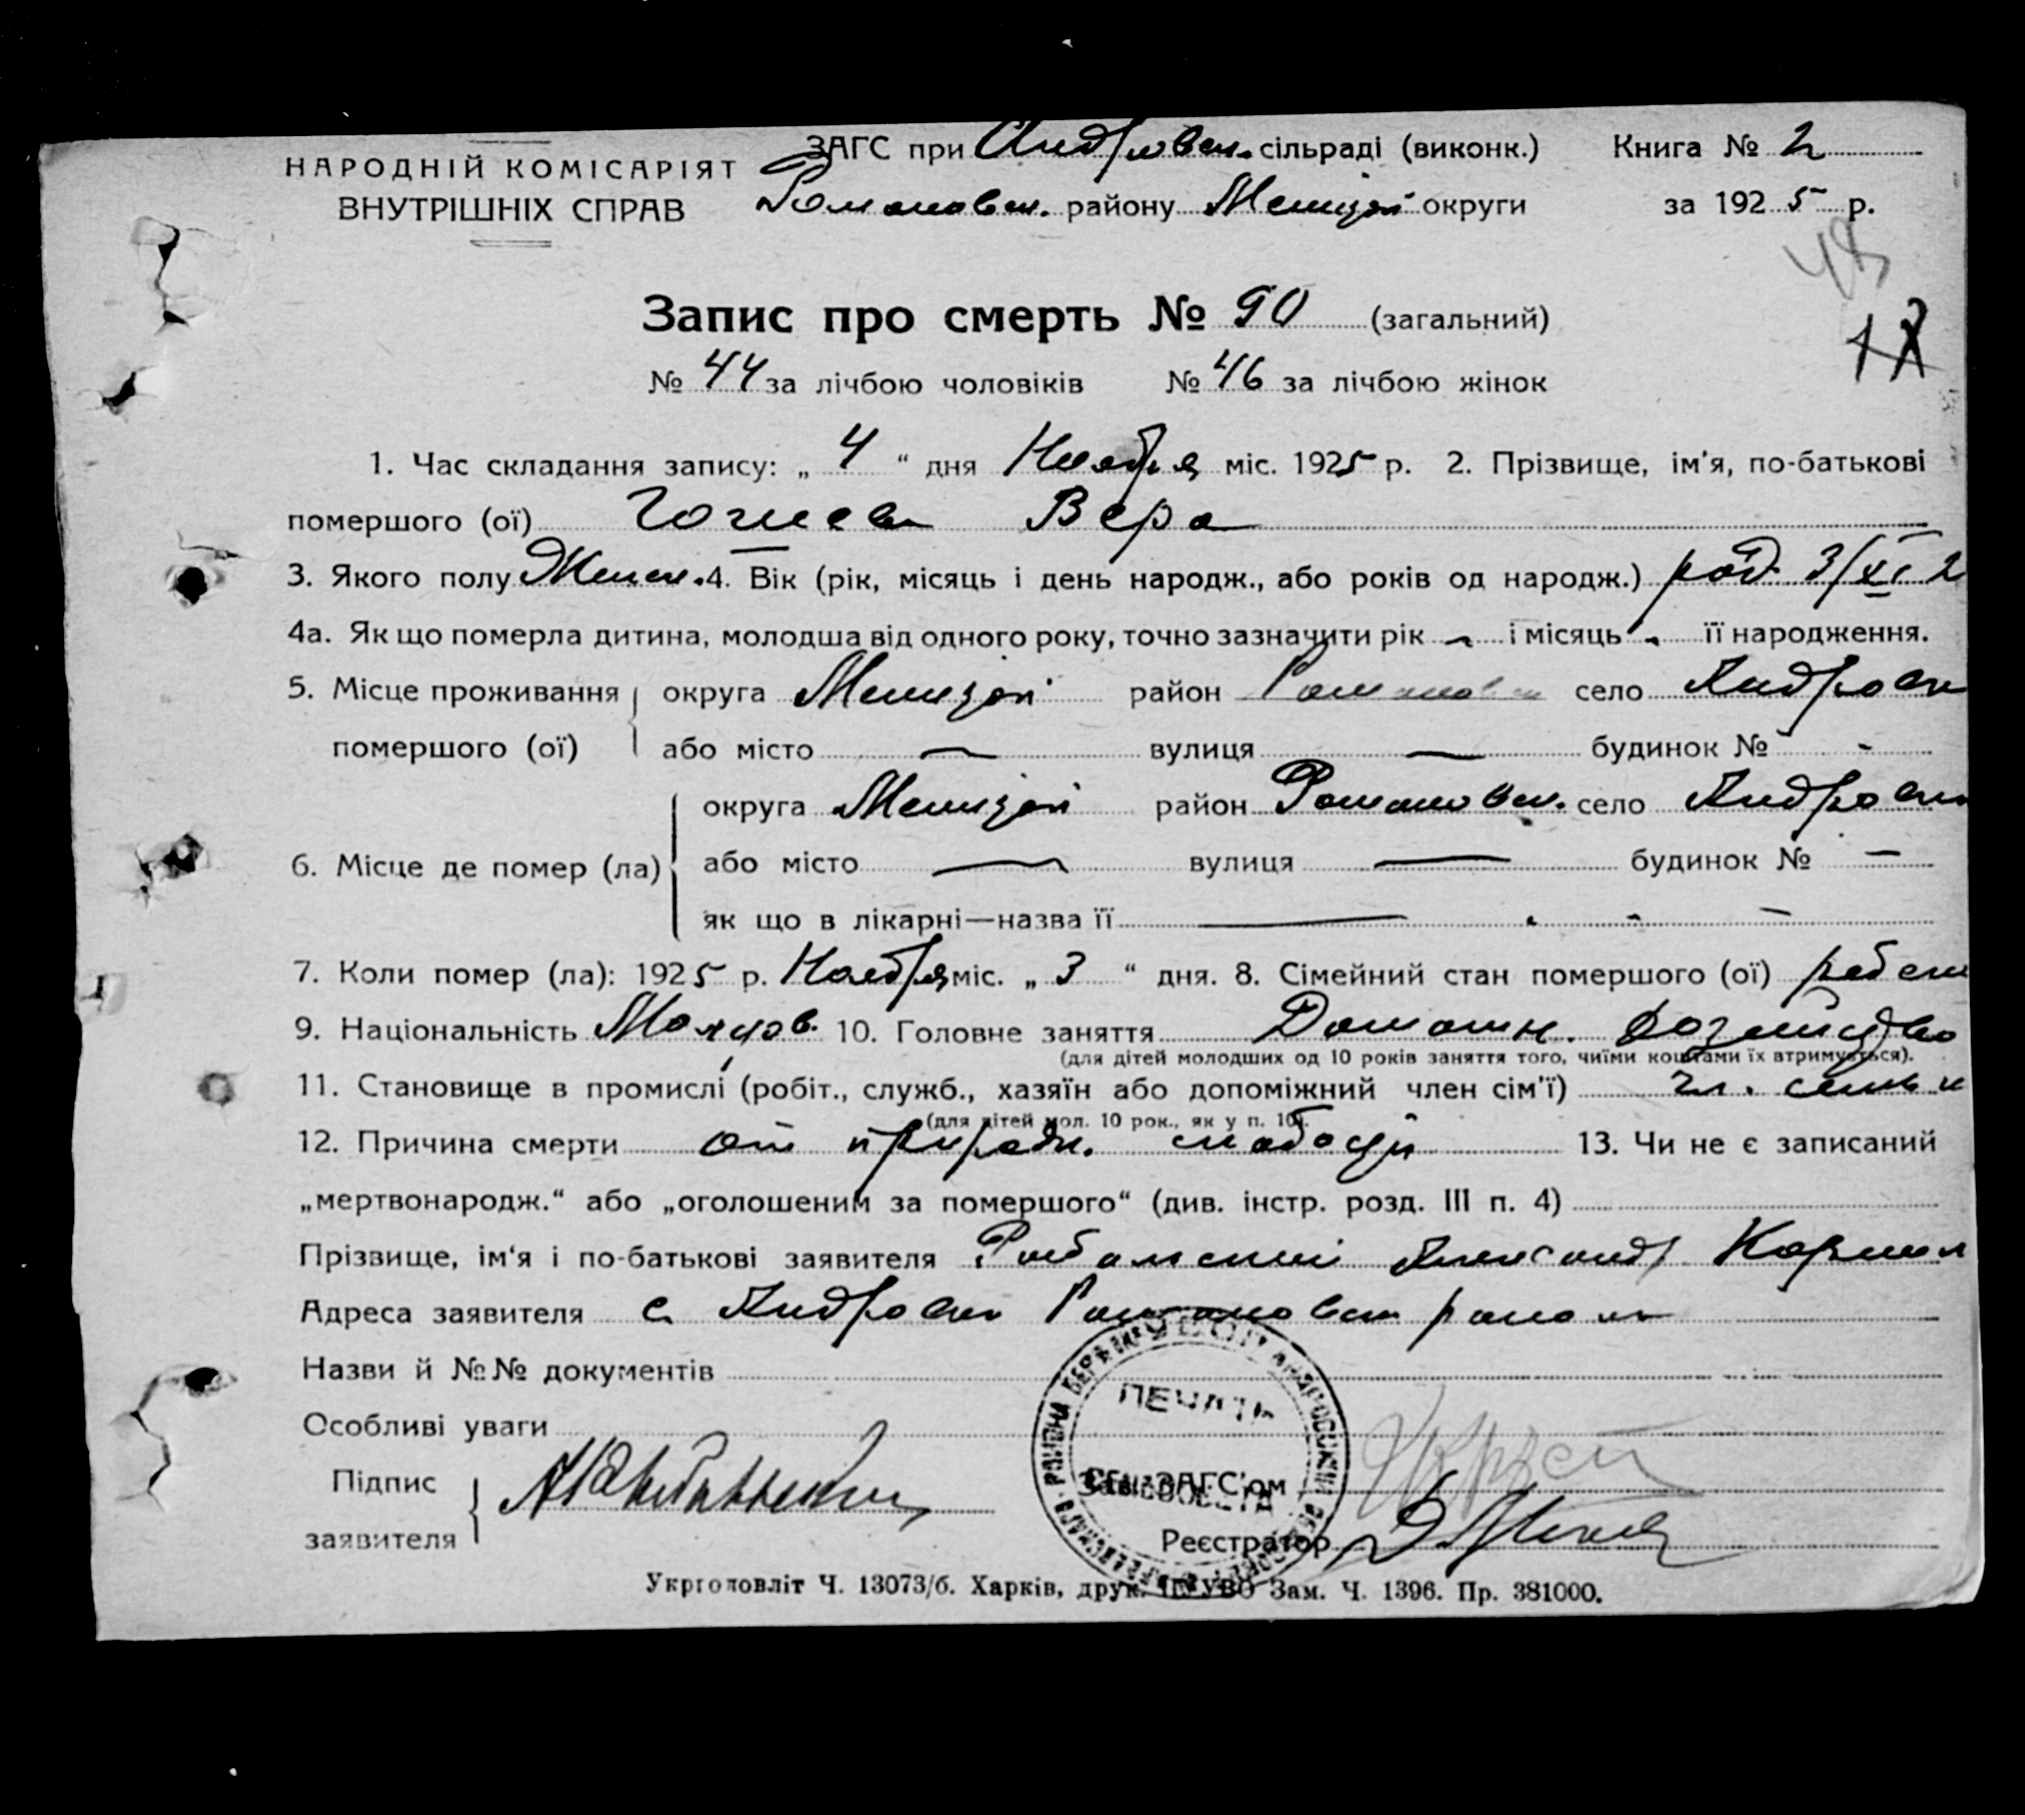 НАРОДНІЙ КОМІСАРІЯТ
ВНУТРІШНІХ СПРАВ
ЗАГС при Андровск. сільраді (виконк.) Книга № 2
Романовск. району округи за 1925 р.
Запис про смерть № 90 (загальний)
№ 44 за лічбою чоловіків № 46 за лічбою жінок
1. Час складання запису: „ 4 “ дня Ноября міс. 1925 р. 2. Прізвище, ім'я, по-батькові
помершого (ої) Вера
3. Якого полу Женск. 4. Вік (рік, місяць і день народж., або років од народж.) род. 3/XI 2
4а. Як що померла дитина, молодша від одного року, точно зазначити рік і місяць її народження.
5. Місце проживання округа район Романовск село Андровк
помершого (ої) або місто — вулиця — будинок № -
округа район Романовск. село Андровк
6. Місце де помер (ла) або місто — вулиця — будинок № —
як що в лікарні—назва її —
7. Коли помер (ла): 1925 р. Ноября міс. „ 3 “ дня. 8. Сімейний стан помершого (ої) ребен
9. Національність Молдов. 10. Головне заняття Домашн. хозяйство
(для дітей молодших од 10 років заняття того, чиїми коштами їх втримується).
11. Становище в промислі (робіт., служб., хазяїн або допоміжний член сім'ї) чл. семьи
(для дітей мол. 10 рок., як у п. 10).
12. Причина смерти от природн. слабости 13. Чи не є записаний
„мертвонародж.“ або „оголошеним за помершого“ (див. інстр. розд. III п. 4)
Прізвище, ім‘я і по-батькові заявителя Александр
Адреса заявителя с. Андровк Романовск района
Назви й №№ документів
Особливі уваги
Підпис
заявителя
ПЕЧАТЬ
Зав. ЗАГС'ом
Реєстратор
Укрголовліт Ч. 13073/б. Харків, друк. ПУУВО Зам. Ч. 1396. Пр. 381000.